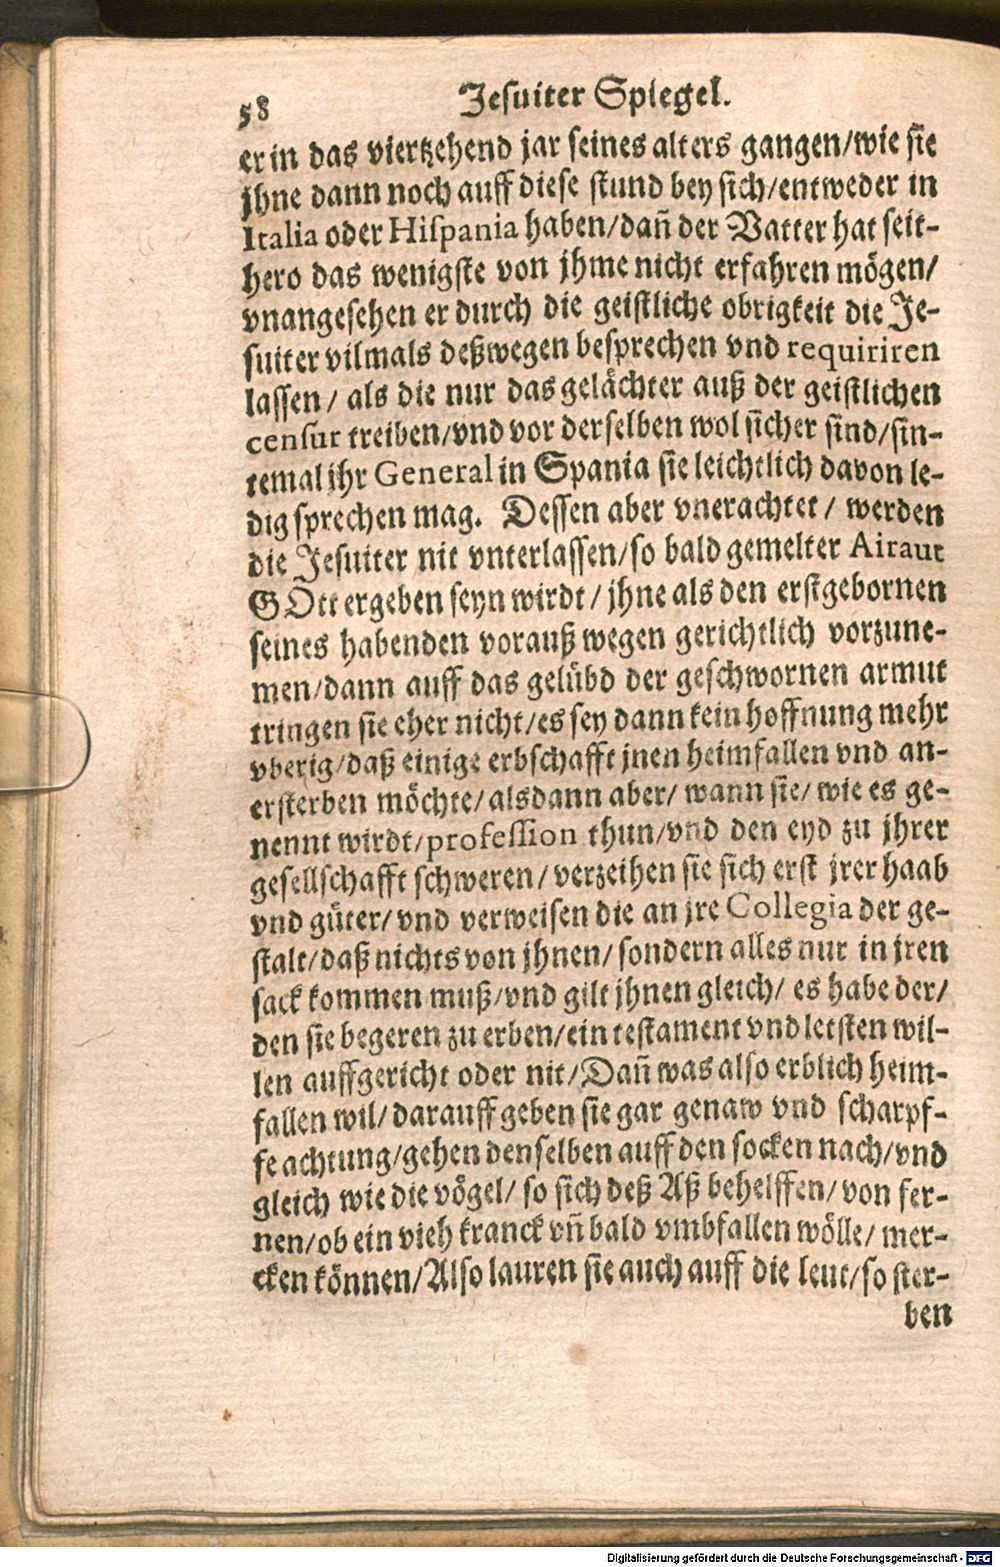 58 Jesuiter Spiegel.
er in das viertzehend jar seines alters gangen/wie sie
jhne dann noch auff diese stund bey sich/entweder in
Italia oder Hispania haben/dañ der Vatter hat seit-
hero das wenigste von jhme nicht erfahren mögen/
vnangesehen er durch die geistliche obrigkeit die Je-
suiter vilmals deßwegen besprechen vnd requiriren
lassen/ als die nur das gelächter auß der geistlichen
censur treiben/vnd vor derselben wol sicher sind/sin-
temal ihr General in Spania sie leichtlich davon le-
dig sprechen mag. Dessen aber vnerachtet/ werden
die Jesuiter nit vnterlassen/so bald gemelter Airaut
GOtt ergeben seyn wirdt/ jhne als den erstgebornen
seines habenden vorauß wegen gerichtlich vorzune-
men/dann auff das gelübd der geschwornen armut
tringen sie eher nicht/es sey dann kein hoffnung mehr
vberig/daß einige erbschafft jnen heimfallen vnd an-
ersterben möchte/alsdann aber/ wann sie/ wie es ge-
nennt wirdt/profession thun/vnd den eyd zu jhrer
gesellschafft schweren/ verzeihen sie sich erst jrer haab
vnd güter/vnd verweisen die an jre Collegia der ge-
stalt/daß nichts von jhnen/sondern alles nur in jren
sack kommen muß/vnd gilt jhnen gleich/ es habe der/
den sie begeren zu erben/ein testament vnd letsten wil-
len auffgericht oder nit/Dañ was also erblich heim-
fallen wil/darauff geben sie gar genaw vnd scharpf-
fe achtung/gehen denselben auff den socken nach/vnd
gleich wie die vögel/ so sich deß Aß behelffen/von fer-
nen/ob ein vieh kranck vñ bald vmbfallen wölle/ mer-
cken können/Also lauren sie auch auff die leut/so ster-
ben
Digitalisierung gefördert durch die Deutsche Forschungsgemeinschaft - DFG